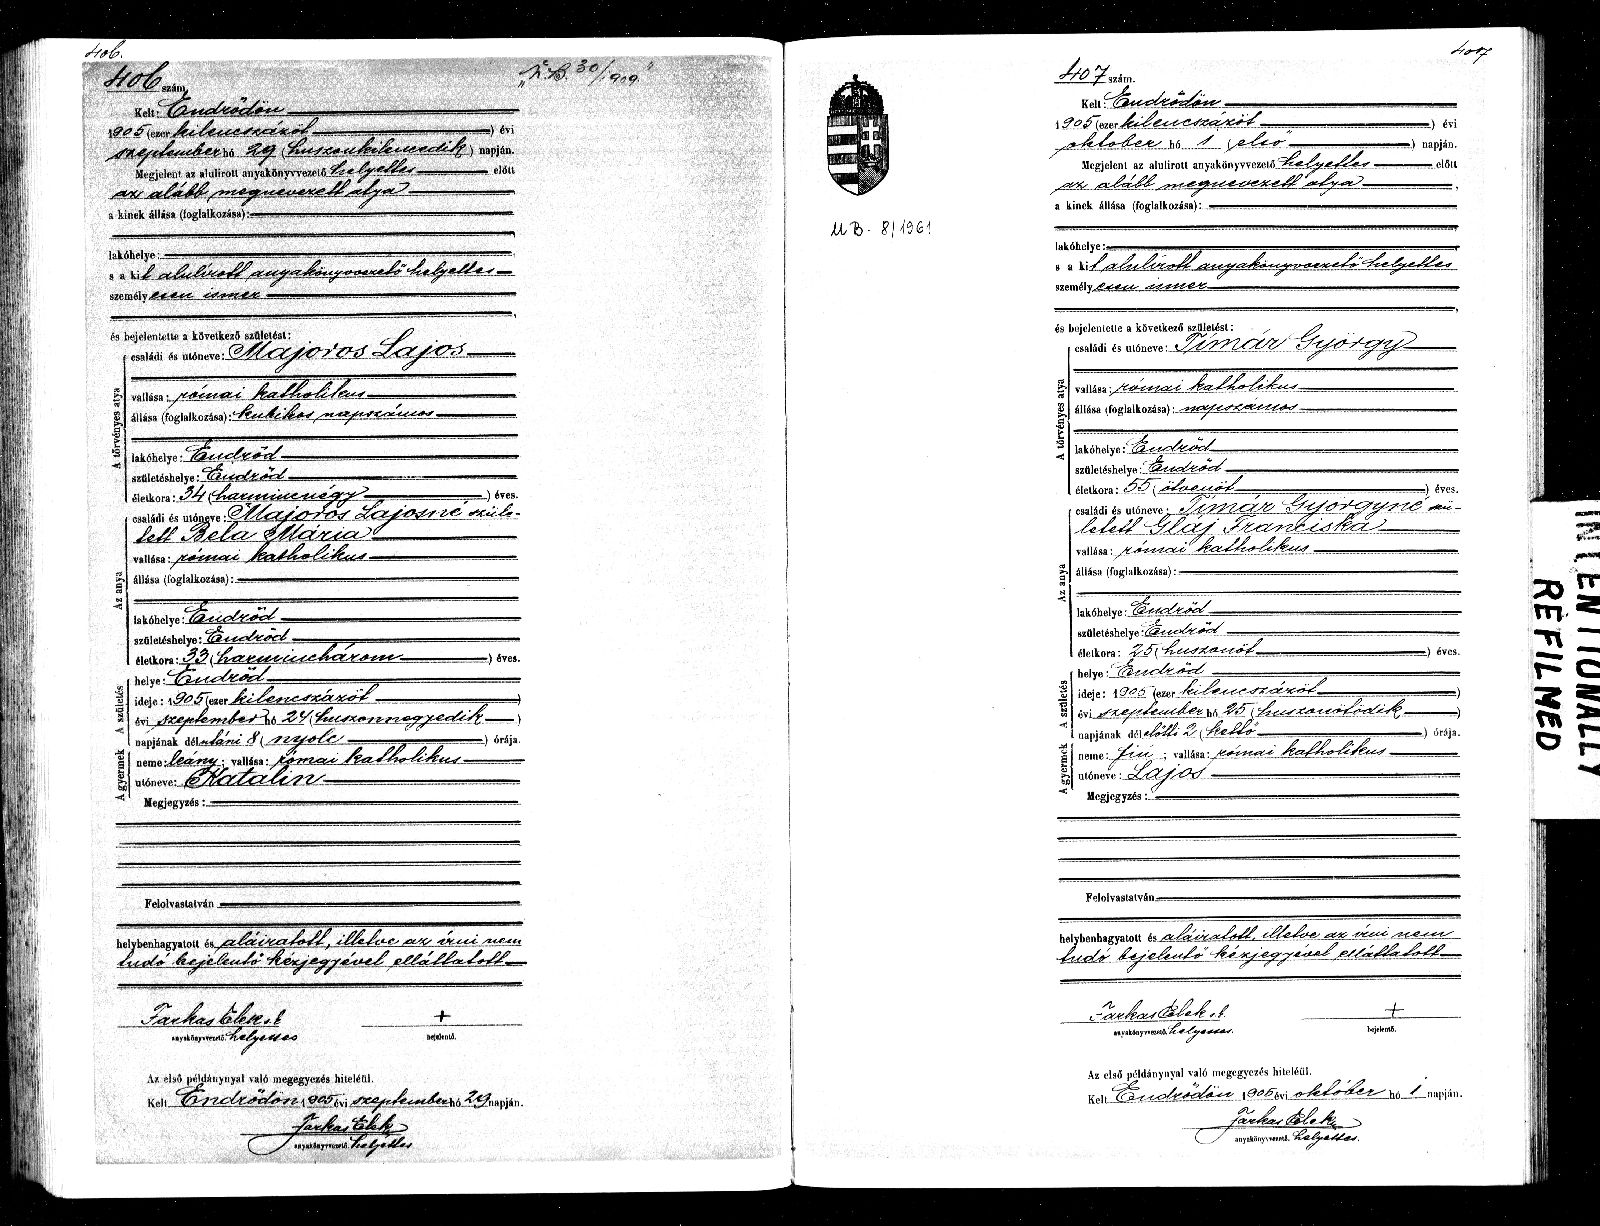 406.
406 szám.
„N.B. 30/1909"
Kelt: Endrődön
1905 (ezer kilenczázöt) évi
szeptember hó 29 (huszonkilencedik) napján.
Megjelent az alulirott anyakönyvvezető helyettes előtt
az alább megnevezett atya
a kinek állása (foglalkozása):
lakóhelye:
s a kit alulírott anyakönyvvezető helyettes
személyesen ismer
és bejelentette a következő születést:
A törvényes atya
családi és utóneve: Majoros Lajos
vallása: római katholikus
állása (foglalkozása): kubikos napszámos
lakóhelye: Endrőd
születéshelye: Endrőd
életkora: 34 (harmincnégy) éves.
Az anya
családi és utóneve: Majoros Lajosné szüle-
tett Bela Mária
vallása: római katholikus
állása (foglalkozása):
lakóhelye: Endrőd
születéshelye: Endrőd
életkora: 33 (harminchárom) éves.
A születés
helye: Endrőd
ideje: 1905 (ezer kilencszázöt)
évi szeptember hó 24 (huszonnegyedik)
napjának délutáni 8 (nyolc) órája.
A gyermek
neme: leány; vallása: római katholikus
utóneve: Katalin
Megjegyzés:
Felolvastatván
helybenhagyatott és aláiratott, illetve az írni nem
tudó bejelentő kézjegyével elláttatott
Farkas Elek s.k. +
anyakönyvvezető. helyettes bejelentő.
Az első példánynyal való megegyezés hiteléül.
Kelt Endrődön 1905 évi szeptember hó 29 napján.
Farkas Elek
anyakönyvvezető. helyettes
407
MB. 8/1961
407 szám.
Kelt: Endrődön
1905 (ezer kilencszázöt) évi
október hó 1 (első) napján.
Megjelent az alulirott anyakönyvvezető helyettes előtt
az alább megnevezett atya
a kinek állása (foglalkozása):
lakóhelye:
s a kit alulírott anyakönyvvezető helyettes
személyesen ismer
és bejelentette a következő születést:
A törvényes atya
családi és utóneve: Tímár György
vallása: római katholikus
állása (foglalkozása): napszámos
lakóhelye: Endrőd
születéshelye: Endrőd
életkora: 55 (ötvenöt) éves.
Az anya
családi és utóneve: Tímár Györgyné szü-
letett Glaj Franciska
vallása: római katholikus
állása (foglalkozása):
lakóhelye: Endrőd
születéshelye: Endrőd
életkora: 25 (huszonöt) éves.
A születés
helye: Endrőd
ideje: 1905 (ezer kilencszázöt)
évi szeptember hó 25 (huszonötödik)
napjának délelőtti 2 (kettő) órája.
A gyermek
neme: fiú; vallása: római katholikus
utóneve: Lajos
Megjegyzés:
Felolvastatván
helybenhagyatott és aláiratott, illetve az írni nem
tudó bejelentő kézjegyével elláttatott
Farkas Elek s.k. +
anyakönyvvezető. helyettes. bejelentő.
Az első példánynyal való megegyezés hiteléül.
Kelt Endrődön 1905 évi október hó 1 napján.
Farkas Elek
anyakönyvvezető. helyettes.
INTENTIONALLY
REFILMED